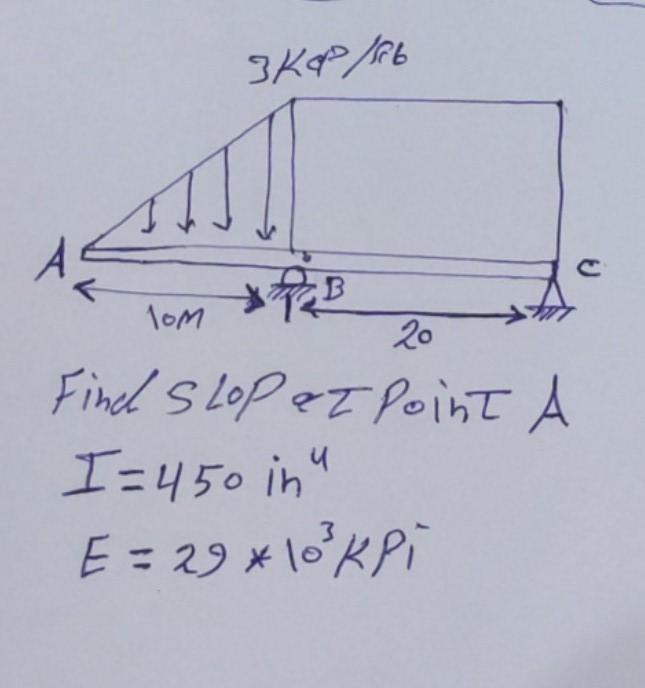 3KiP/Fib
A
C
B
10M
20
Find SLOP at POINT A
I = 450 in⁴
E = 29 * 10³ KPi